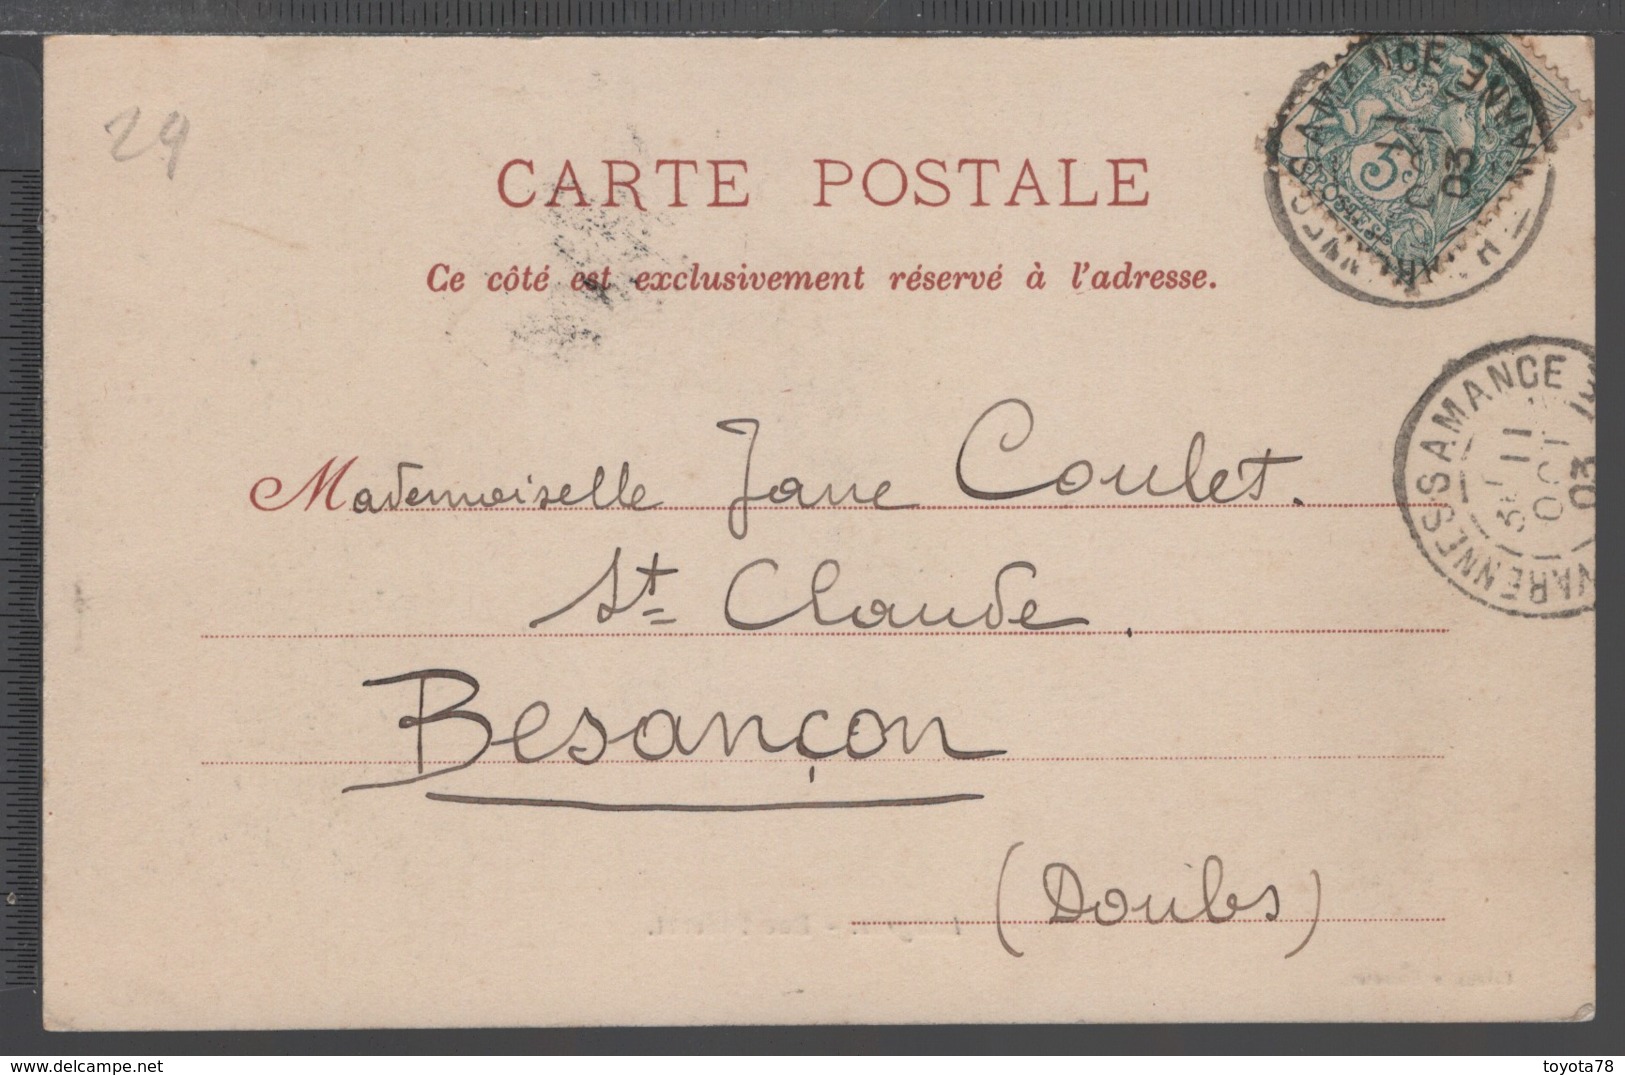 29
CARTE POSTALE
Ce côté est exclusivement réservé à l'adresse.
5c
AMANCE
03
Mademoiselle Jane Coulet.
St Claude.
Besançon
(Doubs)
VARENNES S AMANCE
11
OCT
03
delcampe.net
toyota78